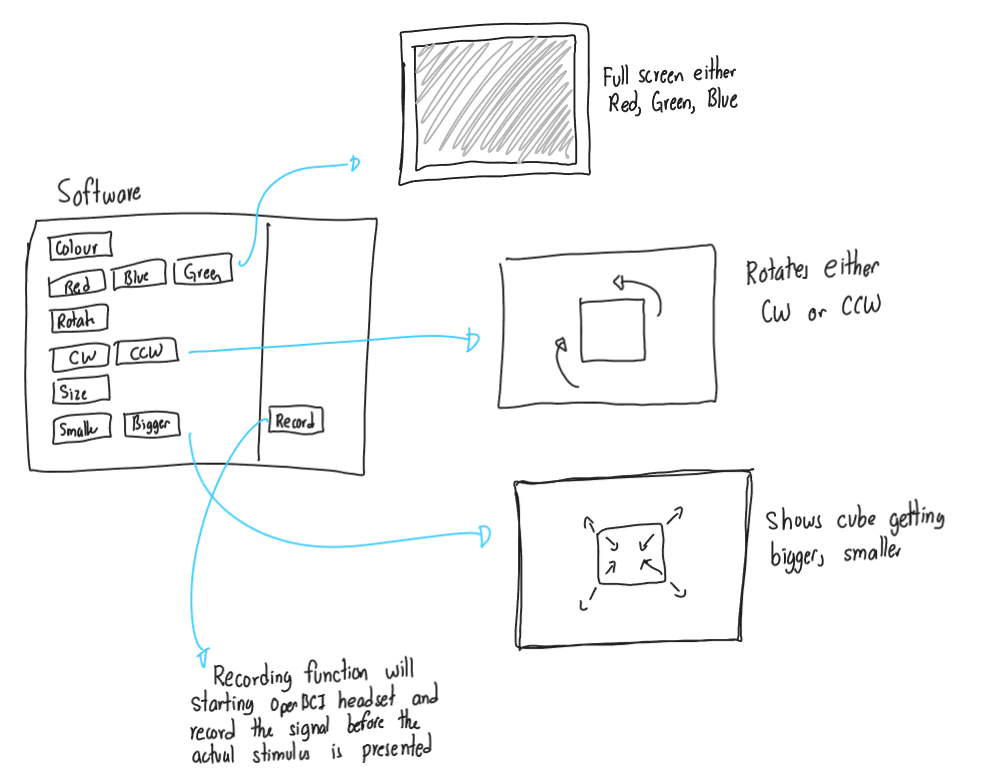 Full screen either
Red, Green, Blue
Software
Colour
Red Blue Green
Rotate
CW CCW
Size
Smaller Bigger
Record
Rotates either
CW or CCW
Shows cube getting
bigger, smaller
Recording function will
starting OpenBCI headset and
record the signal before the
actual stimulus is presented